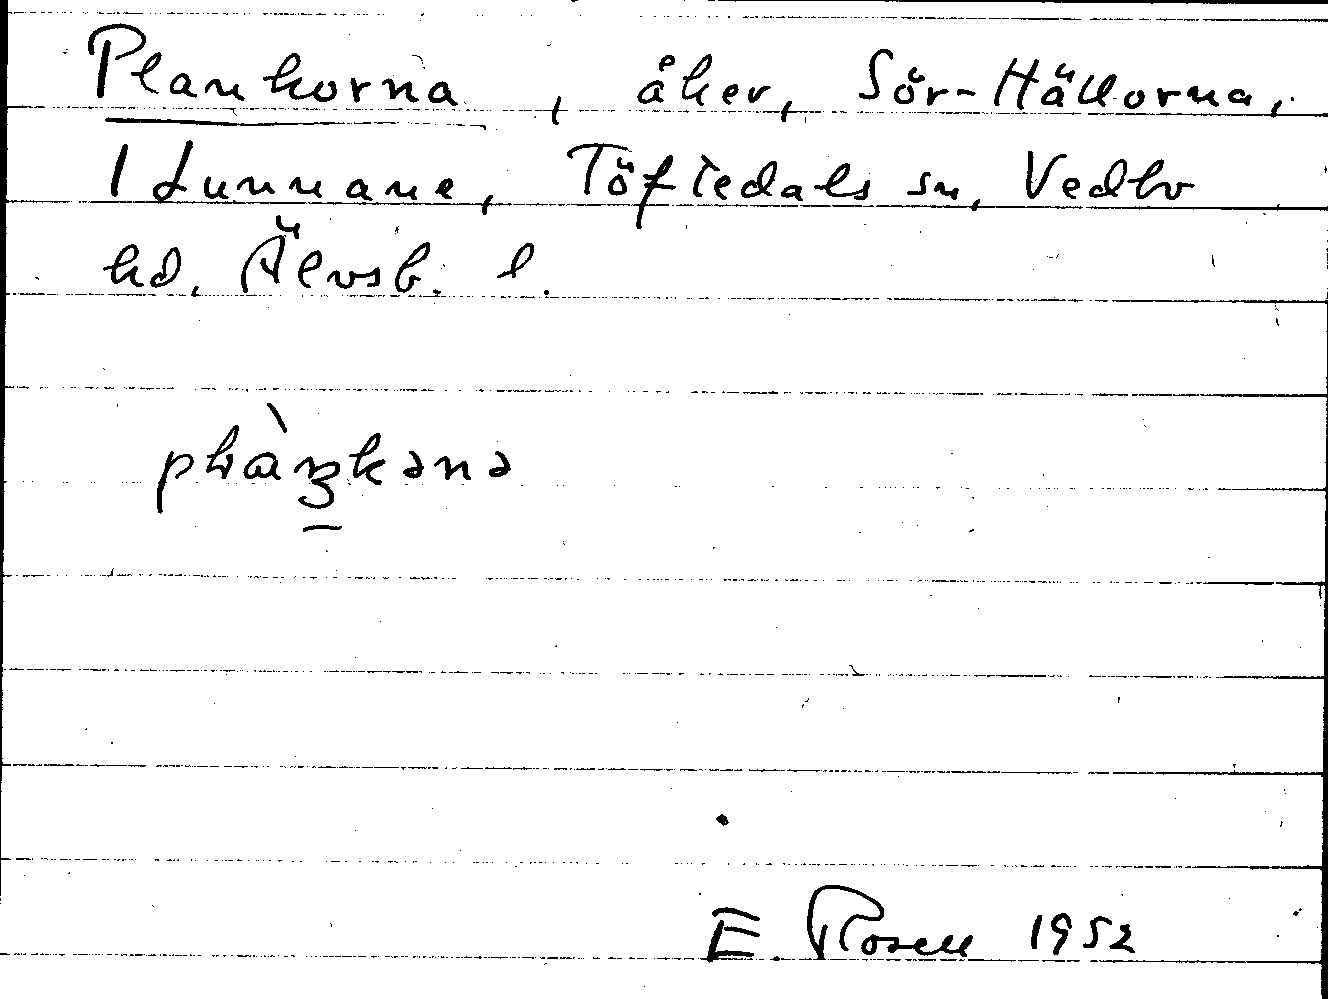 Plankorna, åker, Sör-Hällorna,
1 Lunnane, Töftedals sn, Vedbo
hd. Älvsb. l.
plàŋkənə
E. Rosell 1952